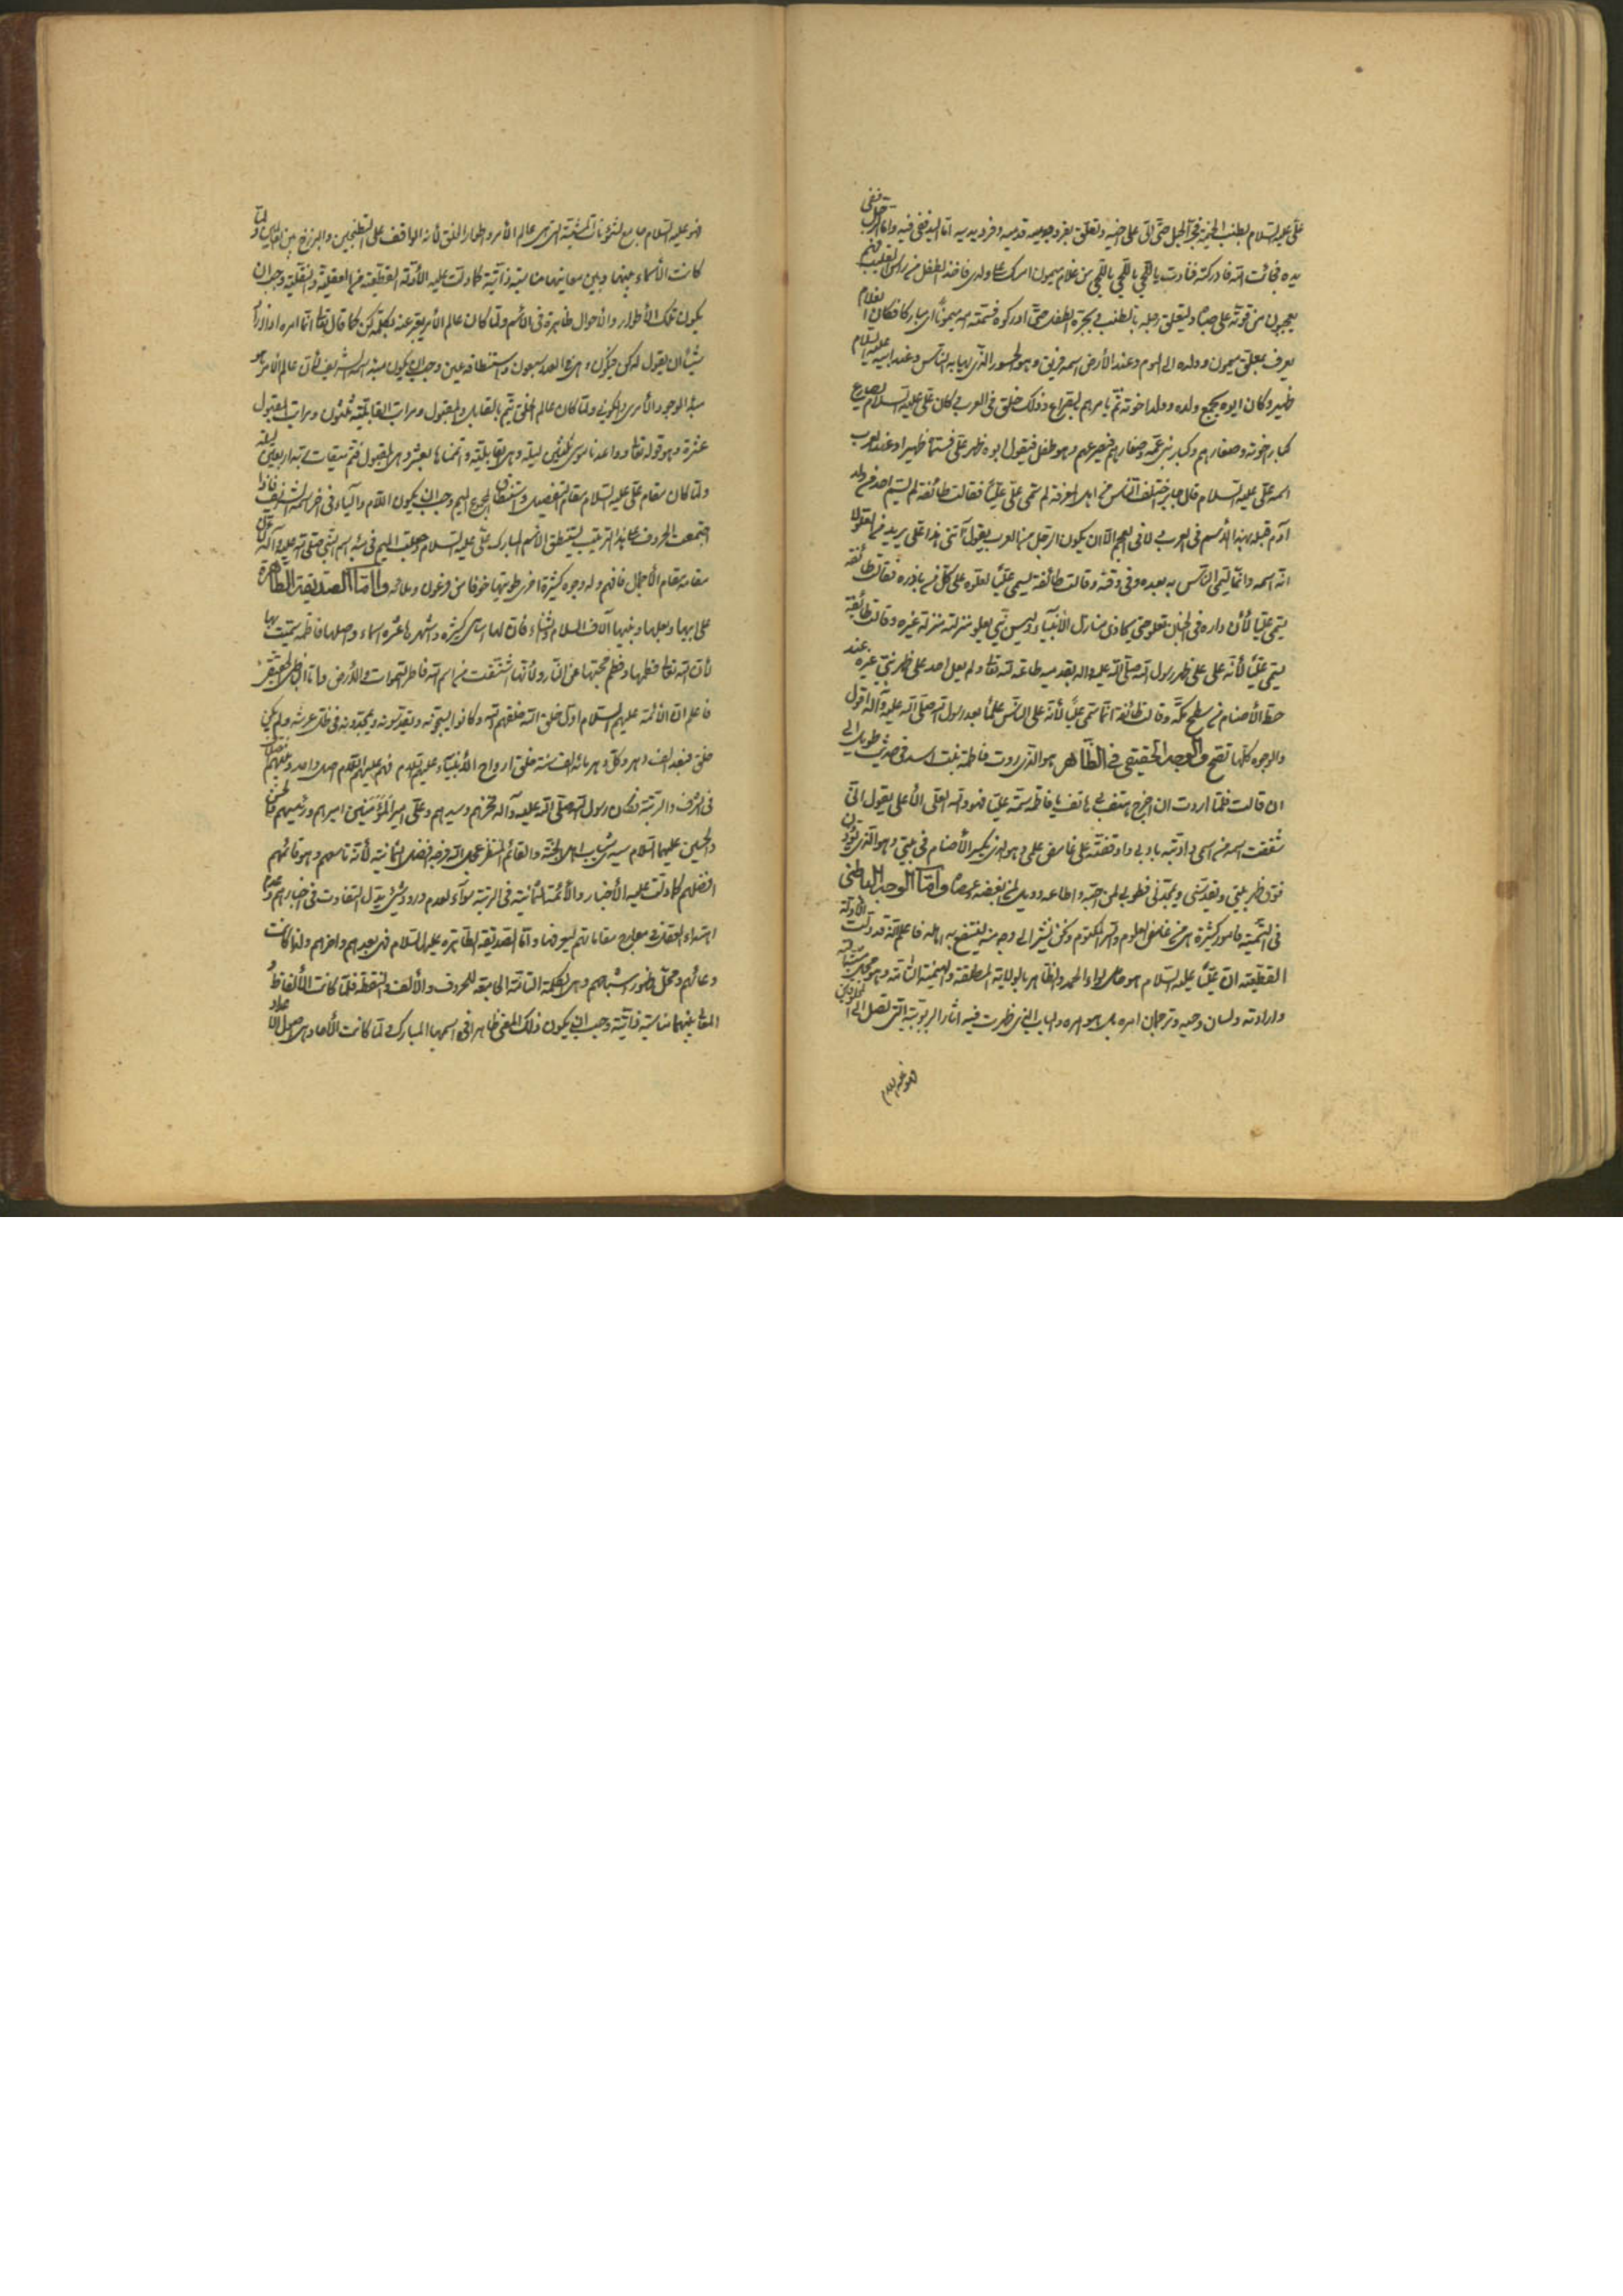 علی علیه السلام بطنب الخیمة فجر الحبل حتی اتی علی اخیه وتعلق بفرد یدیه وفرد قدمیه اما الید ففی فیه واما الرجل ففی
یده فجائت امه فادرکته فنادت یا للحی یا للحی یا للحی من غلام میمون امسک علی ولدی فاخذوا الطفل من راس القلیب وهم
یعجبون من قوته علی صباه ولتعلق رجله بالطنب وبجره الطفل حتی ادرکوه فسمته امه میمونا ای مبارکا فکان الغلام
یعرف بمعلق میمون وولده الی الیوم وعند الأرمن اسمه فریق وهو الجسور الذی یهابه الناس وعند ابیه علیه السلام
ظهیر وکان ابوه یجمع ولده وولد اخوته ثم یامرهم بالصراع وذلک خلق فی العرب کان علی علیه السلام یصارع
کبار اخوته وصغارهم وکبار بنی عمه وصغارهم فیصرعهم وهو طفل فیقول ابوه ظهر علی فسماه ظهیرا وعند العرب
اسمه علی علیه السلام قال جابر اختلف الناس من اهل المعرفة لم سمی علی علیا فقالت طائفة لم یسم احد من ولد
آدم قبله بهذا الأسم فی العرب ولا فی العجم الا ان یکون الرجل من العرب یقول ابنی هذا علی یرید من العلو لا
انه اسمه وانما تسمی الناس به بعده وفی وقته وقالت طائفة سمی علیا لعلوه علی کل من بارزه وقالت طائفة
سمی علیا لأن داره فی الجنان تعلو حتی تحاذی منازل الأنبیاء ولیس نبی یعلو منزلته منزلة غیره وقالت طائفة
سمی علیا لأنه علی علی ظهر رسول الله صلی الله علیه واله بقدمیه طاعة لله تعالی ولم یعل احد علی ظهر نبی غیره عند
حط الأصنام من سطح مکة وقالت طائفة انما سمی علیا لأنه اعلی الناس علما بعد رسول الله صلی الله علیه وآله اقول
والوجوه کلها تصح والوجه الحقیقی فی الظاهر هو الذی روت فاطمة بنت اسد فی حدیث طویل الی
ان قالت فلما اردت ان اخرج هتف بی هاتف یا فاطمة سمیه علیا فهو والله العلی الأعلی یقول انی
شققت اسمه من اسمی وادبته بادبی واوقفته علی غامض علمی وهو الذی یکسر الأصنام فی بیتی وهو الذی یؤذن
فوق ظهر بیتی ویقدسنی ویمجدنی فطوبی لمن احبه واطاعه وویل لمن ابغضه وعصاه واما الوجه الباطنی
فی التسمیة فامور کثیرة هی من غامض العلوم والسر المکتوم ونحن نشیر الی وجه منه لینتفع به اهله فاعلم انه قد دلت الأدلة
القطعیة ان علیا علیه السلام هو حامل لواء الحمد والظاهر بالولایة المطلقة والهیمنة التامة وهو محل مشیته
وارادته ولسان وحیه وترجمان امره بل هو امره والباب الذی ظهرت فیه اثار الربوبیة التی تصل الی المخلوقین
فهو علیه السلام
فهو علیه السلام جامع لشئونات المشیة التی هی عالم الأمر واطوار الخلق لأنه الواقف علی الطتنجین والبرزخ بین العالمین ولما
کانت الأسماء بینها وبین معانیها مناسبة ذاتیة کما دلت علیه الأدلة القطعیة من العقلیة والنقلیة وجب ان
یکون تلک الأطوار والأحوال ظاهرة فی الأسم ولما کان عالم الأمر یعبر عنه بکلمة کن کما قال تعالی انما امره اذا اراد
شیئا ان یقول له کن فیکون وهی فی العدد سبعون واستنطاقه عین وجب ان یکون مبدء اسمه الشریف لأن عالم الأمر هو
مبدء الوجود الأمری والکونی ولما کان عالم الخلق یتم بالقابل والمقبول ومراتب القابلیة ثلثون ومراتب المقبول
عشرة وهو قوله تعالی وواعدنا موسی ثلثین لیلة وهی القابلیة واتممناها بعشر وهی المقبول فتم میقات ربه اربعین لیلة
ولما کان مقام علی علیه السلام مقام التفصیل واستنطاق المجموع المیم وجب ان یکون اللام والیاء فی اخر اسمه الشریف فاذا
اجتمعت الحروف علی هذا الترتیب یستنطق الأسم المبارک علی علیه السلام وجعلت المیم فی مبدء اسم النبی صلی الله علیه وآله لأن
مقامه مقام الأجمال فافهم وله وجوه کثیرة اخری طویتها خوفا من فرعون وملائه واما الصدیقة الطاهرة
علی ابیها وبعلها وبنیها آلاف السلام والثناء فان لها اسامی کثیرة واشهرها عشرة اسماء واصلها فاطمة سمیت بها
لأن الله تعالی فطمها وفطم محبتها عن النار ولأنها اشتقت من اسم الله فاطر السموات والأرض واما الباطن الحقیقی
فاعلم ان الأئمة علیهم السلام اول خلق الله خلقهم الله وکانوا یسبحونه ویقدسونه ویمجدونه فی ظل عرشه ولم یکن
خلق فبعد الف دهر وکل دهر مائة الف سنة خلق ارواح الأنبیاء علیهم السلام فهم علیهم السلام اصل واحد وتفضیلهم
فی الشرف والرتبة فکان رسول الله صلی الله علیه وآله فخرهم وسیدهم وعلی امیر المؤمنین امیرهم ورئیسهم والحسن
والحسین علیهما السلام سید شباب اهل الجنة والقائم المنتظر عجل الله فرجه افضل الثمانیة لأنه تاسعهم وهو قائمهم
افضلهم کما دلت علیه الأخبار والأئمة الثمانیة فی الرتبة سواء لعدم ورود شیء یدل التفاوت فی اخبارهم وعدم
اهتداء العقول الی معارج مقاماتهم لیعرفها واما الصدیقة الطاهرة علیها السلام فهی بعدهم واخرهم ولما کانت
وعائهم ومحل ظهور اشباحهم وهی الکلمة التامة الجامعة للحروف والألف والنقطة فلما کانت الألفاظ و
المعانی بینهما مناسبة ذاتیة وجب ان یکون ذلک المعنی ظاهرا فی اسمها المبارک ولما کانت الأحاد هی اصل الأعداد